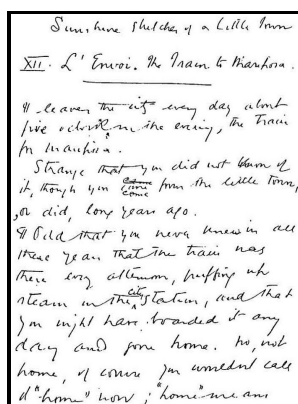 Sunshine Sketches of a Little Town
XII. L'Envoi. The Train to Mariposa.
It leaves the city every day about
five o'clock in the evening, the train
for Mariposa.
Strange that you did not know of
it, though you come from the little town,
or did, long years ago.
Odd that you never knew in all
these years that the train was
there every afternoon, puffing up
steam in the city station, and that
you might have boarded it any
day and gone home. No, not
home, of course you wouldn't call
it "home" now; "home" means